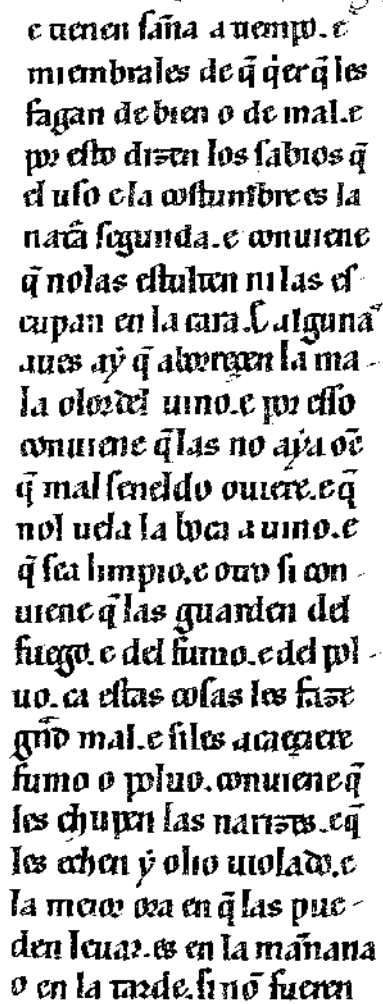 e tienen saña a tiempo. e
miembrales de q̄ q̇erq̄ les
fagan de bien o de mal. e
por esto dizen los sabios q̄
el uso e la costunbre es la
nat̃a segunda. e conuiene
q̄ no las estulten ni las es
cupan en la cara. C algunas
aues aẏ q̄ aborreçen la ma-
la olor del uino. e por esso
conuiene q̄ las no aẏa oc̄
q̄ mal seneldo ouiere. e q̄
nol uela la boca a uino. e
q̄ sea limpio. e otro si con-
uiene q̄ las guarden del
fuego. e del fumo. e del pol-
uo. ca estas cosas les faze
gr̃nd mal. e si les acaeçiere
fumo o poluo. conuiene q̄
les chupen las narizes. e q̄
les echen ẏ olio uiolado. e
la meior ora en q̄ las pue-
den leuar. es en la mañana
o en la tarde. si nō fueren